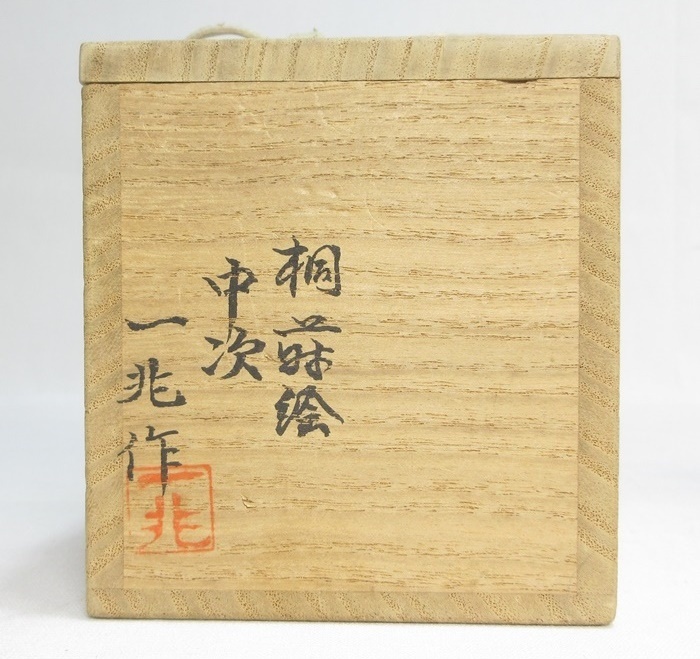 桐蒔絵
中次
一兆作
一兆